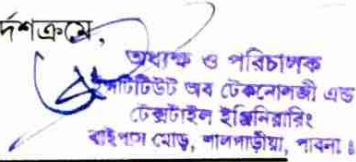 র্দশক্রমে,
অধ্যক্ষ ও পরিচালক
ইন্সটিটিউট অব টেকনোলজী এন্ড
টেক্সটাইল ইঞ্জিনিয়ারিং
বাইপাস মোড়, শালগাড়ীয়া, পাবনা।